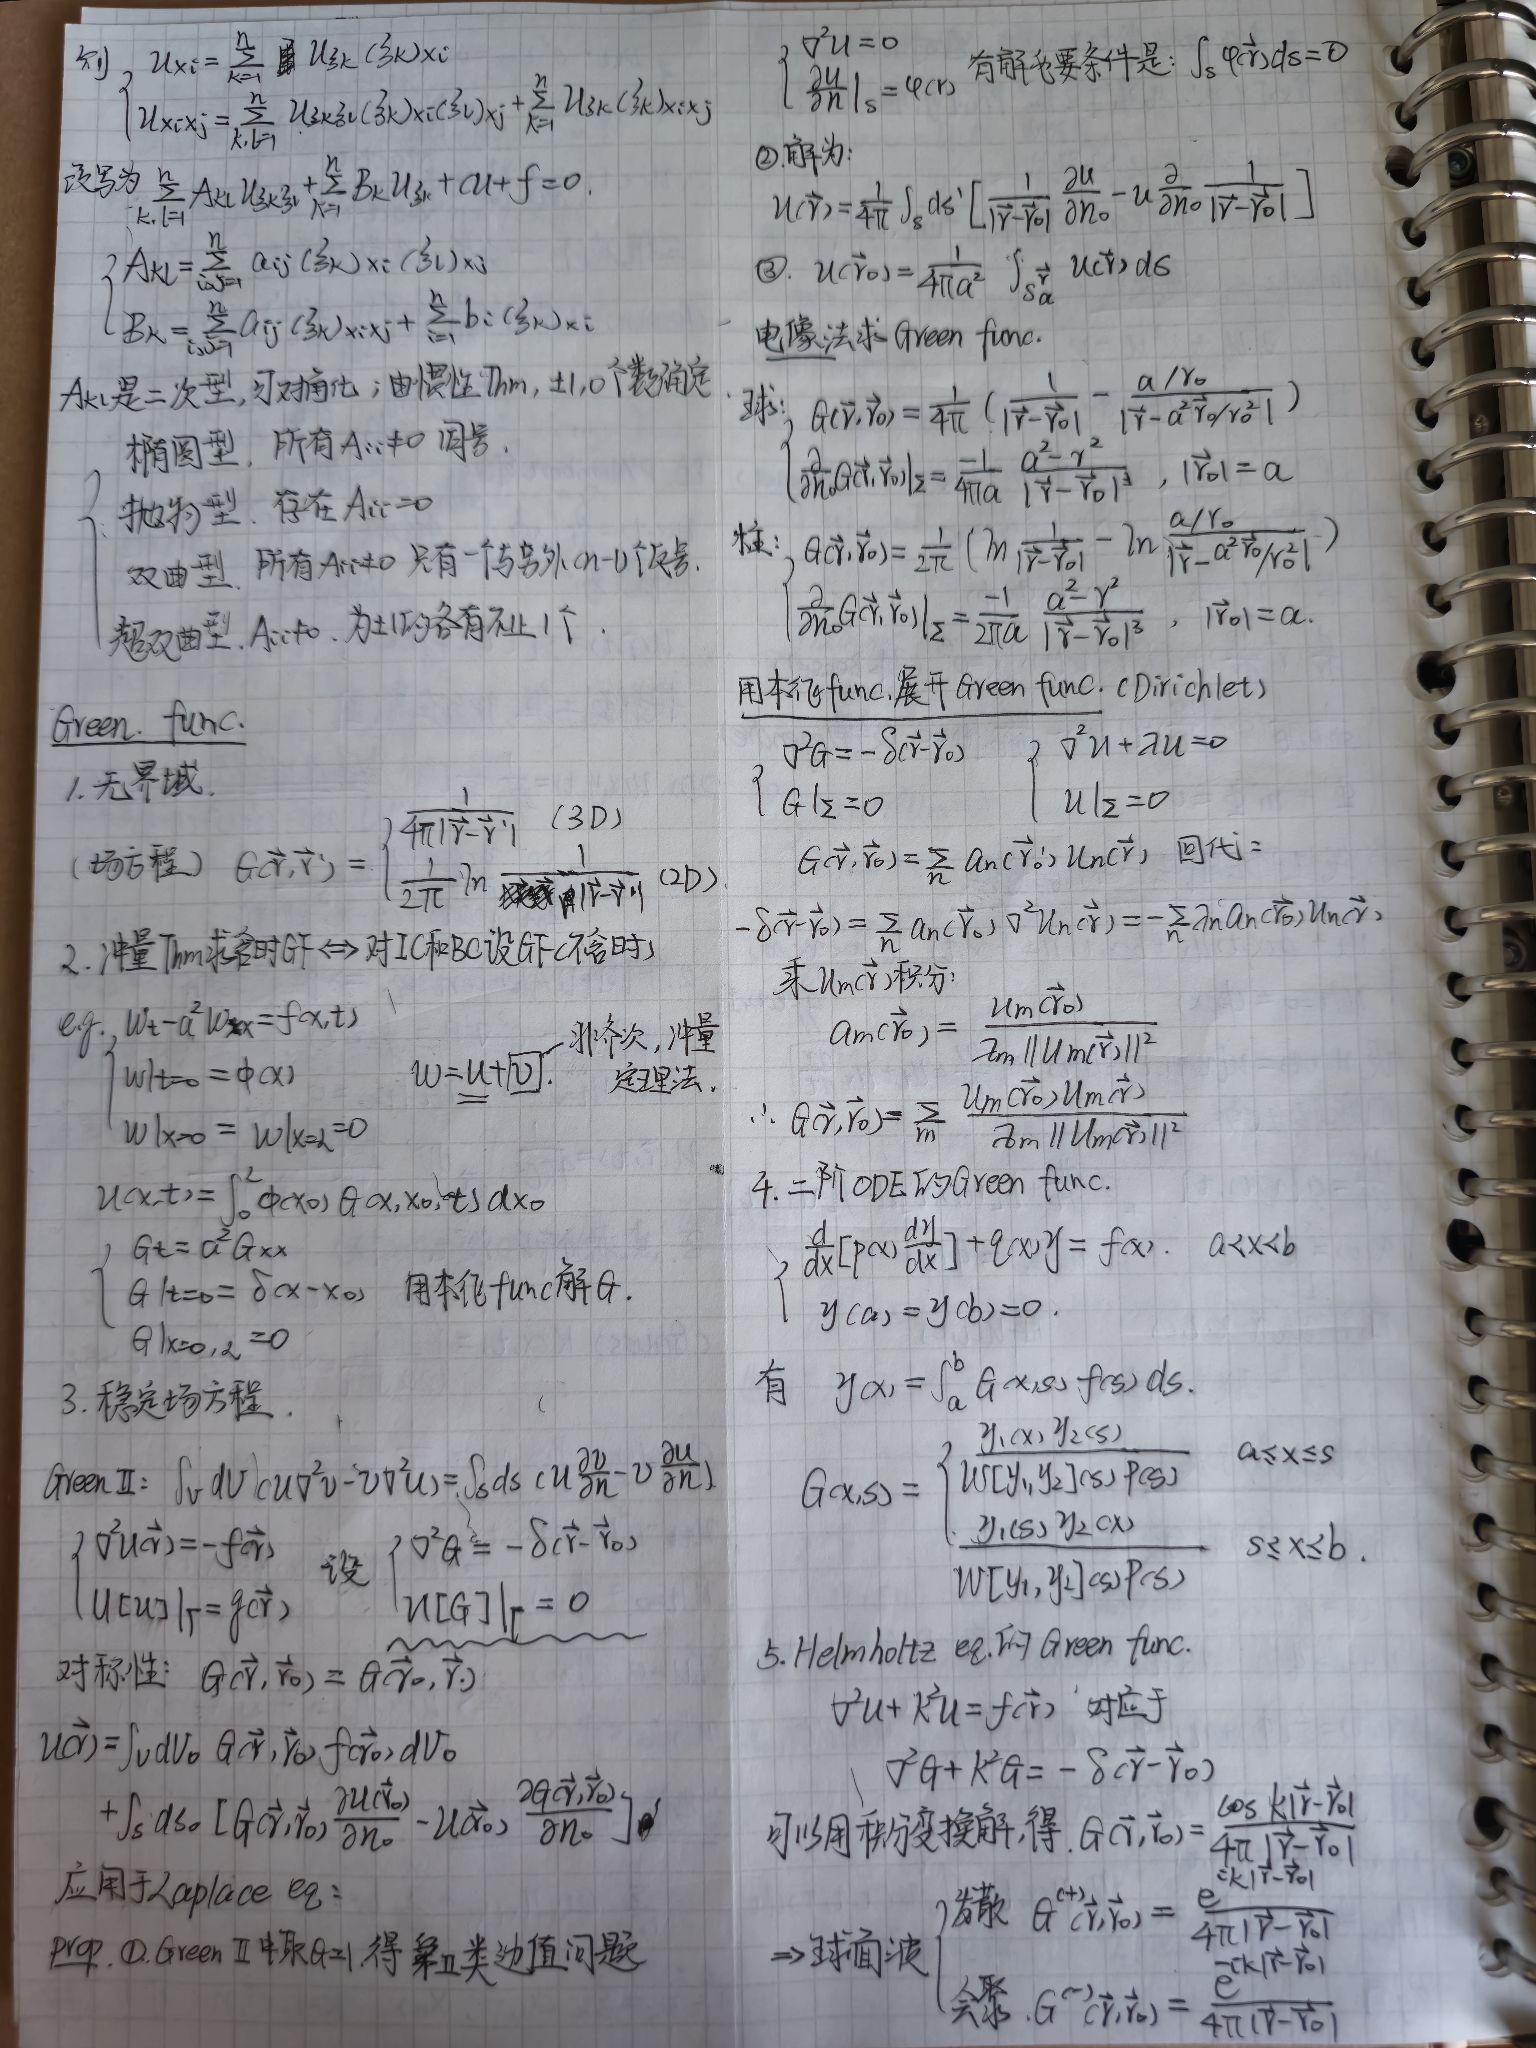 则 { u_{xi} = Σ_{k=1}^{n} u_{ξk} (ξk)_{xi}
u_{xixj} = Σ_{k,l=1}^{n} u_{ξkξl} (ξk)_{xi} (ξl)_{xj} + Σ_{k=1}^{n} u_{ξk} (ξk)_{xixj}
改写为 Σ_{k,l=1}^{n} A_{kl} u_{ξkξl} + Σ_{k=1}^{n} B_k u_{ξk} + cu + f = 0.
{ A_{kl} = Σ_{i,j=1}^{n} a_{ij} (ξk)_{xi} (ξl)_{xj}
B_k = Σ_{i,j=1}^{n} a_{ij} (ξk)_{xixj} + Σ_{i=1}^{n} b_i (ξk)_{xi}
A_{kl}是二次型,可对角化;由惯性Thm,±1,0个数确定
{ 椭圆型. 所有A_{ii}≠0 同号.
抛物型. 存在A_{ii}=0
双曲型. 所有A_{ii}≠0 只有一个与另外(n-1)个反号.
超双曲型. A_{ii}≠0. 为±1的各有不止1个.
Green. func.
1. 无界域.
(场方程) G(r⃗,r⃗') = { 1/(4π|r⃗-r⃗'|) (3D)
1/(2π) ln 1/|r⃗-r⃗'| (2D)
2. 冲量Thm求含时GF ⟺ 对IC和BC设GF(不含时)
e.g. { w_t - a²w_{xx} = f(x,t)
w|_{t=0} = φ(x) w = u + v. 非齐次,冲量定理法.
w|_{x=0} = w|_{x=L} = 0
u(x,t) = ∫_0^L φ(x_0) G(x,x_0,t) dx_0
{ G_t = a²G_{xx}
G|_{t=0} = δ(x-x_0) 用本征func解G.
G|_{x=0,L} = 0
3. 稳定场方程.
Green II: ∫_V dV (u∇²v - v∇²u) = ∫_S ds (u ∂v/∂n - v ∂u/∂n)
{ ∇²u(r⃗) = -f(r⃗) 设 { ∇²G = -δ(r⃗-r⃗_0)
U[u]|_Γ = g(r⃗) U[G]|_Γ = 0
对称性: G(r⃗,r⃗_0) = G(r⃗_0,r⃗)
u(r⃗) = ∫_V dV_0 G(r⃗,r⃗_0) f(r⃗_0) dV_0
+ ∫_S ds_0 [G(r⃗,r⃗_0) ∂u(r⃗_0)/∂n_0 - u(r⃗_0) ∂G(r⃗,r⃗_0)/∂n_0]
应用于Laplace eq:
prop. ①. Green II 中取G=1.得 第II类边值问题
{ ∇²u = 0
∂u/∂n|_S = φ(r) 有解必要条件是: ∫_S φ(r⃗) ds = 0
②.解为:
u(r⃗) = 1/(4π) ∫_S ds' [1/|r⃗-r⃗_0| ∂u/∂n_0 - u ∂/∂n_0 1/|r⃗-r⃗_0|]
③. u(r⃗_0) = 1/(4πa²) ∫_{S_a^{r⃗}} u(r⃗) ds
电像法求Green func.
球: { G(r⃗,r⃗_0) = 1/(4π) (1/|r⃗-r⃗_0| - (a/r_0)/|r⃗-a²r⃗_0/r_0²|)
∂/∂n_0 G(r⃗,r⃗_0)|_Σ = -1/(4πa) (a²-r²)/|r⃗-r⃗_0|³, |r⃗_0| = a
柱: { G(r⃗,r⃗_0) = 1/(2π) (ln 1/|r⃗-r⃗_0| - ln (a/r_0)/|r⃗-a²r⃗_0/r_0²|)
∂/∂n_0 G(r⃗,r⃗_0)|_Σ = -1/(2πa) (a²-r²)/|r⃗-r⃗_0|³, |r⃗_0| = a.
用本征func.展开Green func. (Dirichlet)
{ ∇²G = -δ(r⃗-r⃗_0) { ∇²u + λu = 0
G|_Σ = 0 u|_Σ = 0
G(r⃗,r⃗_0) = Σ_n a_n(r⃗_0) u_n(r⃗) 回代:
-δ(r⃗-r⃗_0) = Σ_n a_n(r⃗_0) ∇²u_n(r⃗) = -Σ_n λ_n a_n(r⃗_0) u_n(r⃗)
乘u_m(r⃗)积分:
a_m(r⃗_0) = u_m(r⃗_0) / (λ_m ||u_m(r⃗)||²)
∴ G(r⃗,r⃗_0) = Σ_m u_m(r⃗_0) u_m(r⃗) / (λ_m ||u_m(r⃗)||²)
4. 二阶ODE的Green func.
{ d/dx [p(x) dy/dx] + q(x)y = f(x). a<x<b
y(a) = y(b) = 0.
有 y(x) = ∫_a^b G(x,s) f(s) ds.
G(x,s) = { y_1(x) y_2(s) / (W[y_1,y_2](s) P(s)) a≤x≤s
y_1(s) y_2(x) / (W[y_1,y_2](s) P(s)) s≤x≤b.
5. Helmholtz eq.的 Green func.
∇²u + k²u = f(r⃗) 对应于
∇²G + k²G = -δ(r⃗-r⃗_0)
可以用积分变换解,得. G(r⃗,r⃗_0) = cos k|r⃗-r⃗_0| / (4π|r⃗-r⃗_0|)
⇒球面波 { 发散 G^{(+)}(r⃗,r⃗_0) = e^{ik|r⃗-r⃗_0|} / (4π|r⃗-r⃗_0|)
会聚. G^{(-)}(r⃗,r⃗_0) = e^{-ik|r⃗-r⃗_0|} / (4π|r⃗-r⃗_0|)